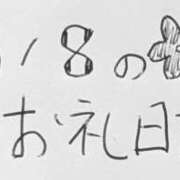 8の
お礼日